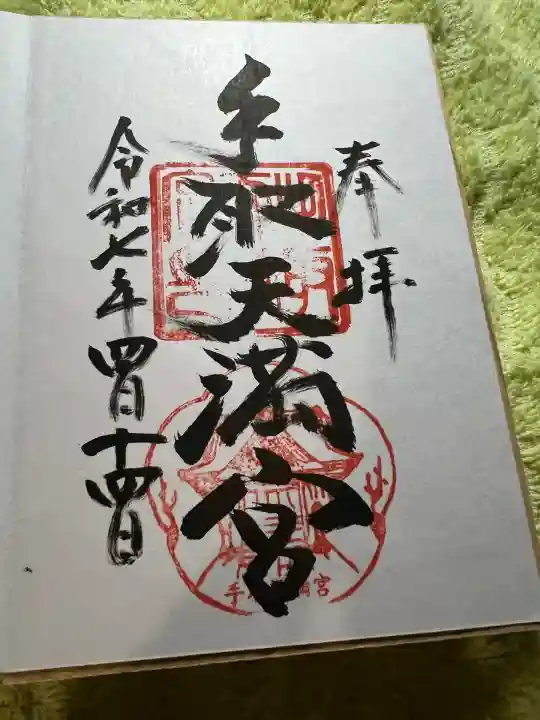 奉拝
手取天満宮
令和七年四月十四日
手 満宮